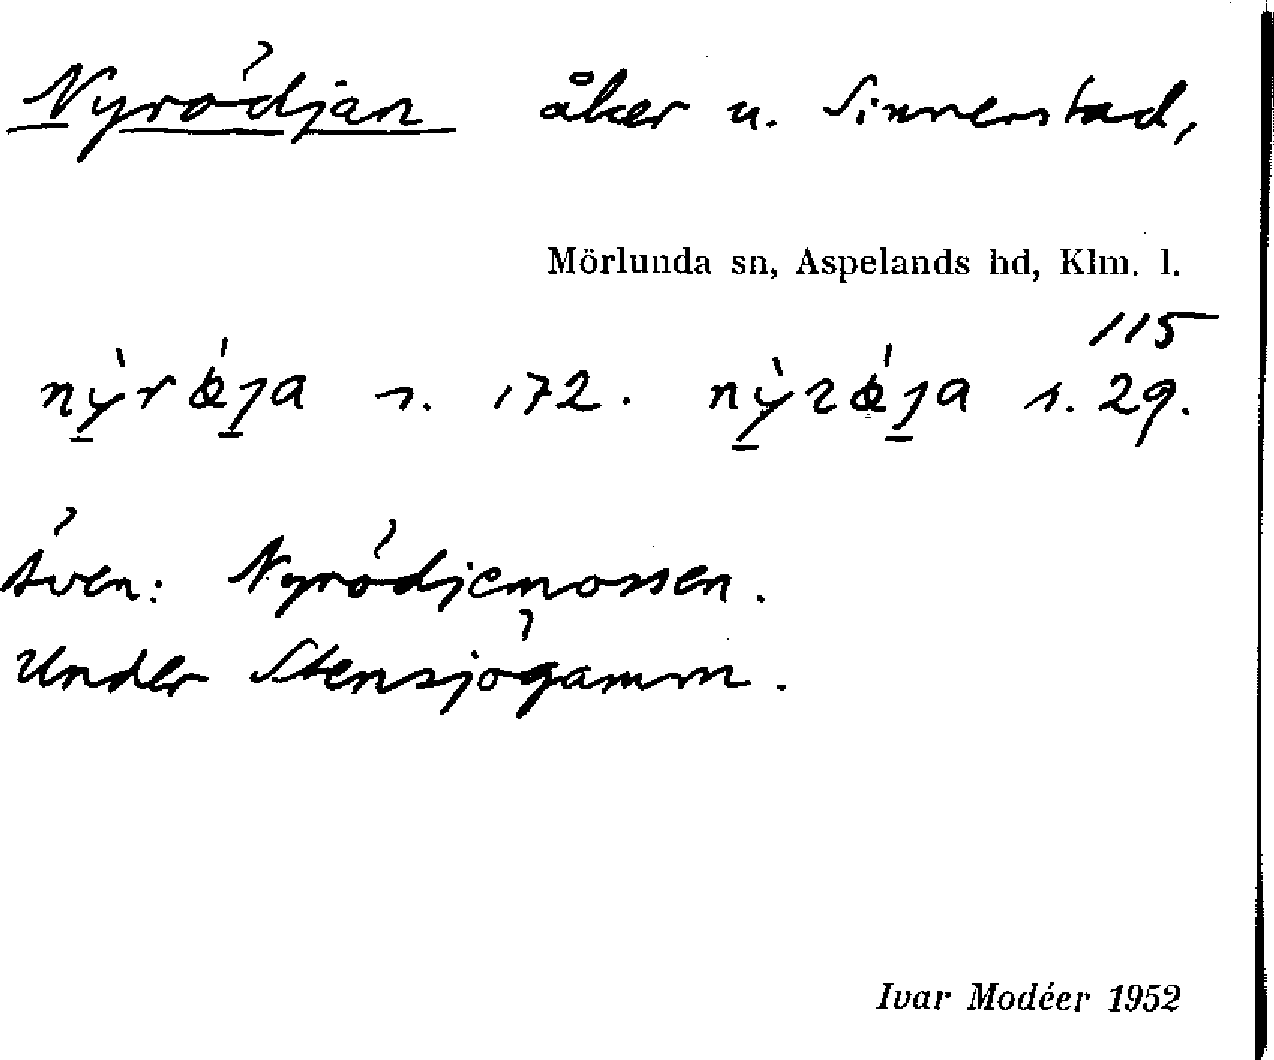 Nyrödjan åker u. Sinnerstad,
Mörlunda sn, Aspelands hd, Klm. l.
115
s. 172. s. 29.
Även: Nyrödjemossen.
Under Stensjögamm.
Ivar Modéer 1952